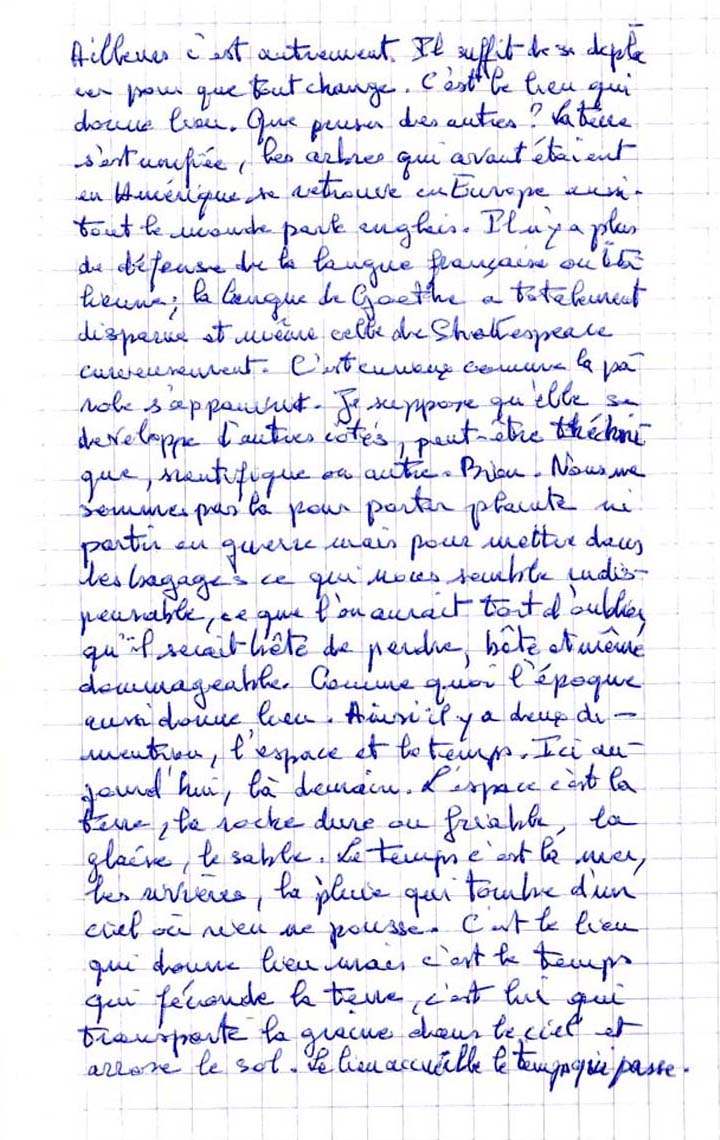 Ailleurs c'est autrement. Il suffit de se depla
cer pour que tout change. C'est le lieu qui
donne lieu. Que penser des autres ? La terre
s'est unifiée, les arbres qui avant étaient
en Amérique se retrouve en Europe aussi.
tout le monde parle anglais. Il n'y a plus
de défense de la langue française ou ita
lienne ; la langue de Goethe a totalement
disparue et même celle de Shakespeare
curieusement. C'est curieux comme la pa
role s'appauvrit. Je suppose qu'elle se
developpe d'autres côtés, peut-être théchni
que, scientifique ou autre. Bien. Nous ne
sommes pas là pour porter plainte ni
partir en guerre mais pour mettre dans
les bagages ce qui nous semble indis-
pensable, ce que l'on aurait tort d'oublier,
qu'il serait bête de perdre, bête et même
dommageable. Comme quoi l'époque
aussi donne lieu. Ainsi il y a deux di-
mention, l'espace et le temps. Ici au-
jourd'hui, là demain. L'espace c'est la
terre, la roche dure ou friable, la
glaise, le sable. Le temps c'est la mer,
les rivières, la pluie qui tombe d'un
ciel où rien ne pousse. C'est le lieu
qui donne lieu mais c'est le temps
qui féconde la terre, c'est lui qui
transporte la graine dans le ciel et
arrose le sol. Le lieu accueille le temps qui passe.